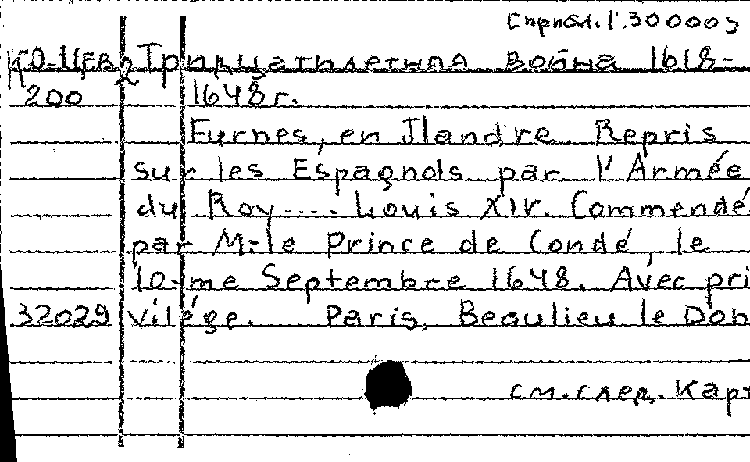 1:30000
Ко-Цев 2 Тридцатилетняя война 1618-
200 1648г.
Furnes, en Flandre Repris
sur les Espagnols par l'Armée
du Roy.... Louis XIV. Commendé
par M-le Prince de Condé, le
10-me Septembre 1648. Avec pri
32029 vilége. Paris, Beaulieu le Don
см. след. карт